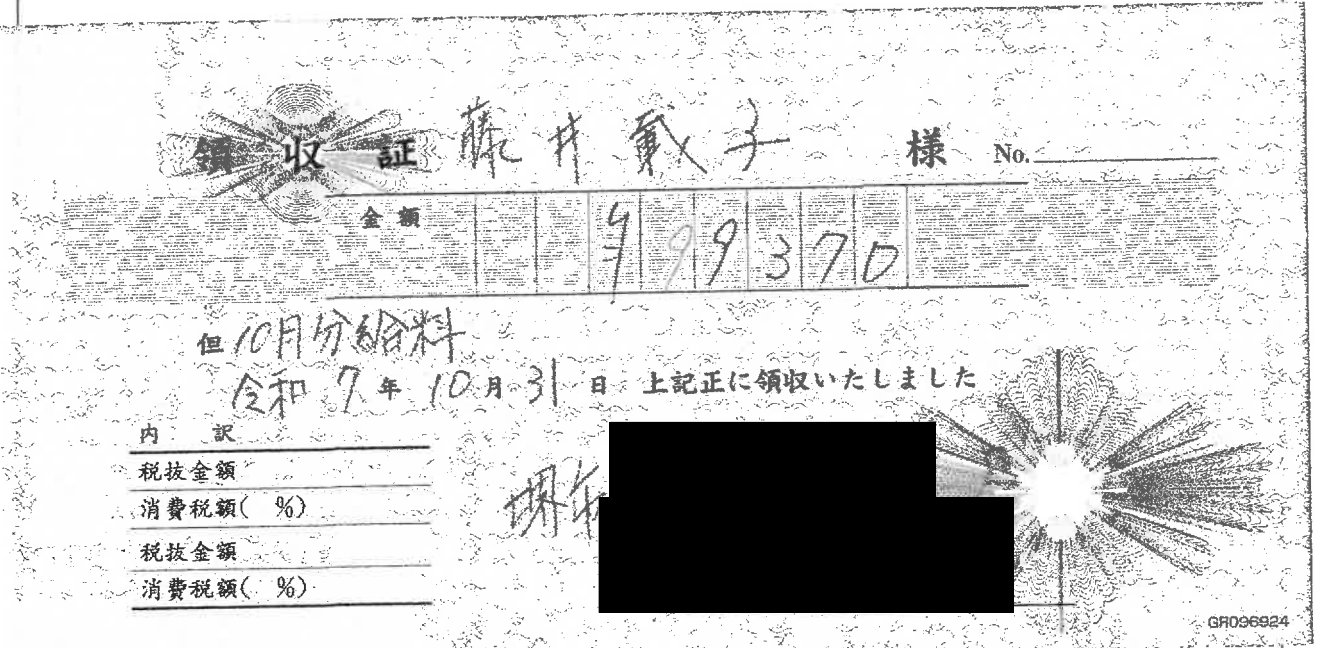 領収証 藤井 戴子 様 No.
金額 ¥99370
但 10月分給料
令和 7 年 10 月 31 日 上記正に領収いたしました
内 訳
税抜金額
消費税額( %)
税抜金額
消費税額( %)
堺
GR096924